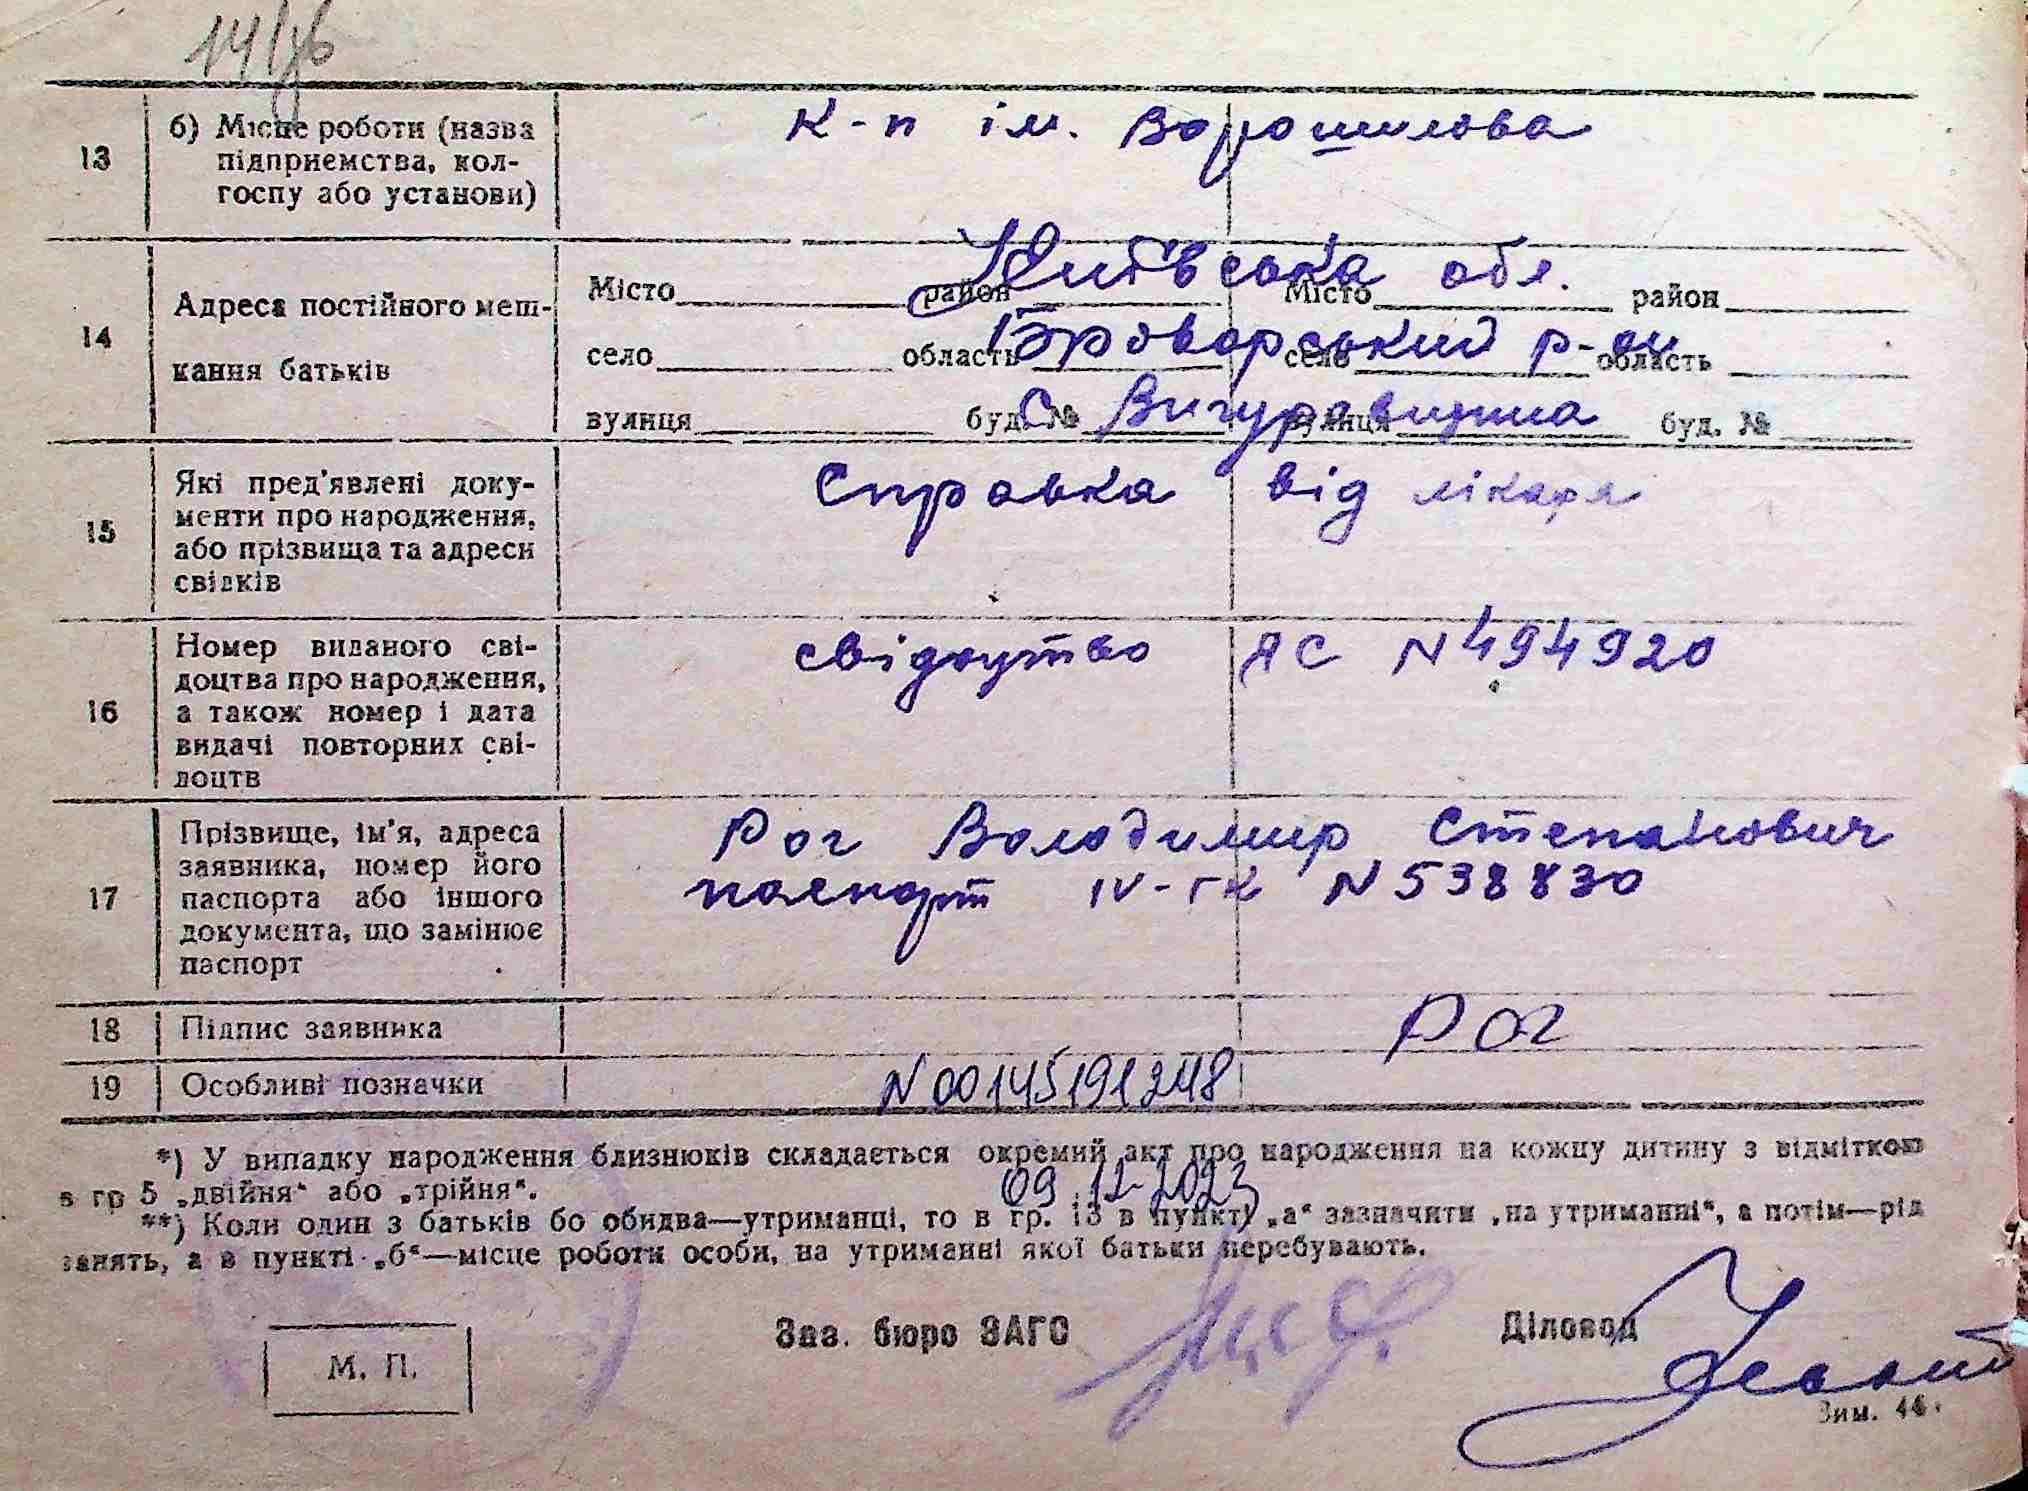 13 б) Місце роботи (назва
підприємства, кол-
госпу або установи)
к-п ім. Ворошилова
14 Адреса постійного меш-
кання батьків
Місто район Місто район
Київська обл.
село область село область
Броварський р-он
вулиця буд. № вулиця буд. №
с Вигуравщина
15 Які пред'явлені доку-
менти про народження,
або прізвища та адреси
свідків
Справка від лікаря
16 Номер виданого сві-
доцтва про народження,
а також номер і дата
видачі повторних сві-
доцтв
свідоцтво АС N 494920
17 Прізвище, ім'я, адреса
заявника, номер його
паспорта або іншого
документа, що замінює
паспорт
Рог Володимир Степанович
паспорт IV-ГК N 538830
18 Підпис заявника Рог
19 Особливі позначки N 00145191248
*) У випадку народження близнюків складається окремий акт про народження на кожну дитину з відміткою
в гр 5 „двійня“ або „трійня“.
09.12.2023
**) Коли один з батьків бо обидва—утриманці, то в гр. 13 в пункті „а“ зазначити „на утриманні“, а потім—рід
занять, а в пункті „б“—місце роботи особи, на утриманні якої батьки перебувають.
Зав. бюро ЗАГС Діловод
М. П.
Зим. 44